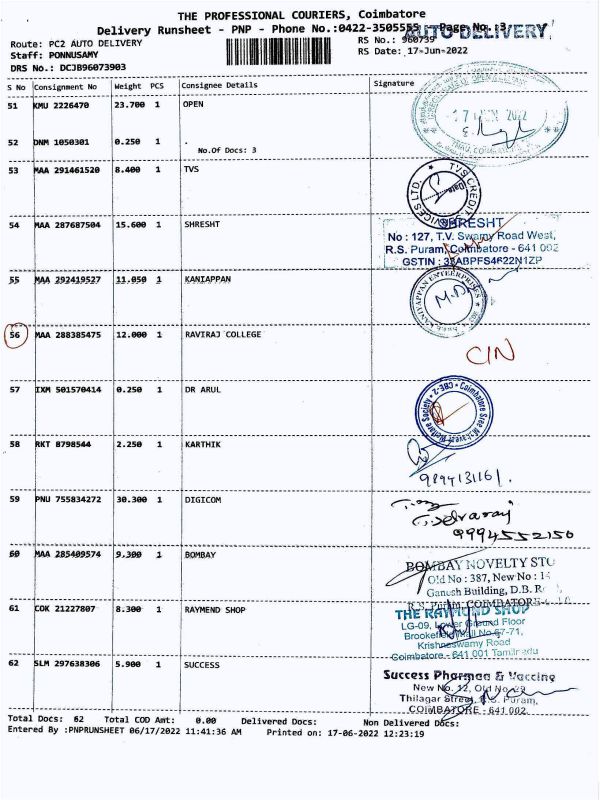 THE PROFESSIONAL COURIERS, Coimbatore
Delivery Runsheet - PNP - Phone No.:0422-3505555 Page No.:3
AUTO DELIVERY
Route: PC2 AUTO DELIVERY
RS No.: 960739
Staff: PONNUSAMY
RS Date: 17-Jun-2022
DRS No.: DCJB96073903
S No Consignment No Weight PCS Consignee Details Signature
51 KMU 2226470 23.700 1 OPEN
17 JUN 2022
52 DNM 1050301 0.250 1 .
No.Of Docs: 3
53 MAA 291461520 8.400 1 TVS
TVS CREDIT
54 MAA 287687504 15.600 1 SHRESHT
SHRESHT
No : 127, T.V. Swamy Road West,
R.S. Puram, Coimbatore - 641 002
GSTIN : 33ABPFS4622N1ZP
55 MAA 292419527 11.050 1 KANIAPPAN
KANIYAPPAN ENTERPRISES
56 MAA 288385475 12.000 1 RAVIRAJ COLLEGE
C/N
57 IXM 501570414 0.250 1 DR ARUL
CBE-2 Coimbatore Welfare Society
58 RKT 8798544 2.250 1 KARTHIK
9894131161.
59 PNU 755834272 30.300 1 DIGICOM
T. Selvaraj
9994552150
60 MAA 285409574 9.300 1 BOMBAY
BOMBAY NOVELTY STO
Old No : 387, New No : 14
Ganesh Building, D.B. R
R.S. Puram, COIMBATORE
61 COK 21227807 8.300 1 RAYMEND SHOP
THE RAYMOND SHOP
LG-09, Lower Ground Floor
Brookefield Mall No.67-71,
Krishnaswamy Road
Coimbatore - 641 001 Tamilnadu
62 SLM 297638306 5.900 1 SUCCESS
Success Pharmaa & Vaccine
New No. 12, Old No. 29
Thilagar Street, R.S. Puram,
COIMBATORE - 641 002.
Total Docs: 62 Total COD Amt: 0.00 Delivered Docs: Non Delivered Docs:
Entered By :PNPRUNSHEET 06/17/2022 11:41:36 AM Printed on: 17-06-2022 12:23:19